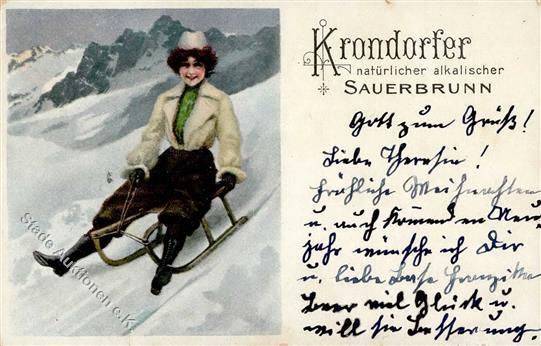 Krondorfer
natürlicher alkalischer
SAUERBRUNN
Gott zum Gruß!
Liebe Theresia!
Fröhliche Weihnachten
u. auch kommenden Neu-
jahr wünsche ich Dir
u. liebe Base Franziska
viel Glück u.
will sie Besserung.
Stade Auktionen e.K.